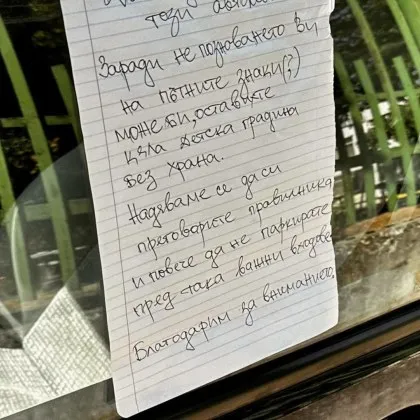 този
Заради не познаването Ви
на пътните знаки(?)
може би, оставихте
цяла детска градина
без храна.
Надяваме се да си
преговорите правилника
и повече да не паркирате
пред така важни входове.
Благодарим за вниманието,